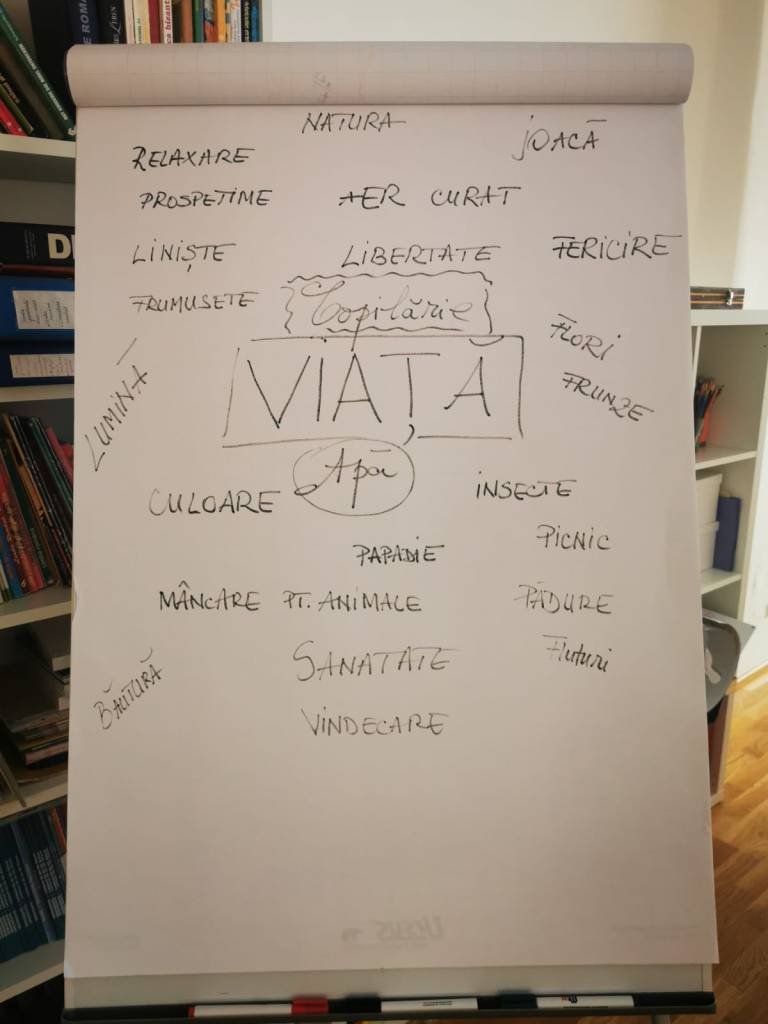 NATURA
JOACĂ
RELAXARE
PROSPEȚIME
AER CURAT
LINIȘTE
LIBERTATE
FERICIRE
FRUMUSEȚE
Copilărie
FLORI
VIAȚĂ
FRUNZE
LUMINĂ
Apă
CULOARE
INSECTE
PICNIC
PAPADIE
MÂNCARE PT. ANIMALE
PĂDURE
SANATATE
Fluturi
BĂUTURĂ
VINDECARE
URSUS